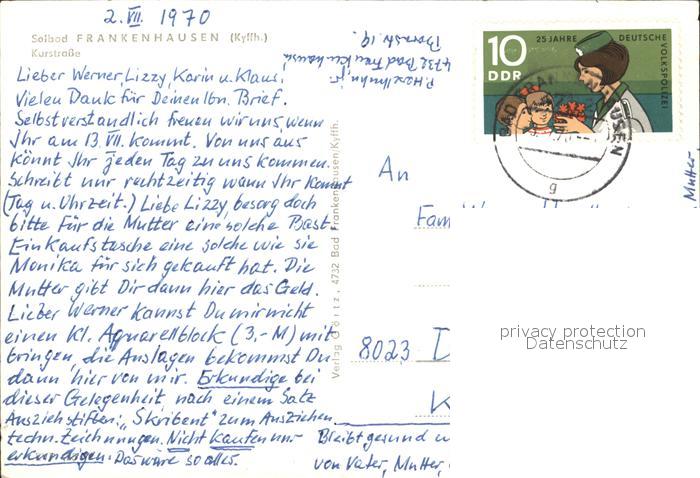 2. VII. 1970
Solbad FRANKENHAUSEN (Kyffh.)
Kurstraße
Lieber Werner, Lizzy, Karin u. Klaus!
Vielen Dank für Deinen lbn. Brief.
Selbstverständlich freuen wir uns, wenn
Ihr am 13. VII. kommt. Von uns aus
könnt Ihr jeden Tag zu uns kommen.
Schreibt nur rechtzeitig wann Ihr kommt
(Tag u. Uhrzeit.) Liebe Lizzy, besorg doch
bitte für die Mutter eine solche Bast
Einkaufstasche eine solche wie sie
Monika für sich gekauft hat. Die
Mutter gibt Dir dann hier das Geld.
Lieber Werner kannst Du mir nicht
einen Kl. Aquarellblock (3,-M) mit
bringen, die Auslagen bekommst Du
dann hier von mir. Erkundige bei
dieser Gelegenheit nach einem Satz
Ausziehstiften: „Skribent" zum Ausziehen
techn. Zeichnungen. Nicht kaufen nur
erkundigen. Das wäre so alles.
Bleibt gesund u
von Vater, Mutter,
Mutter
4732 Bad Frankenhausen
Verlag Görtz, 4732 Bad Frankenhausen/Kyffh.
10
DDR
25 JAHRE DEUTSCHE
VOLKSPOLIZEI
g
An
Fam
8023 D
K
privacy protection
Datenschutz